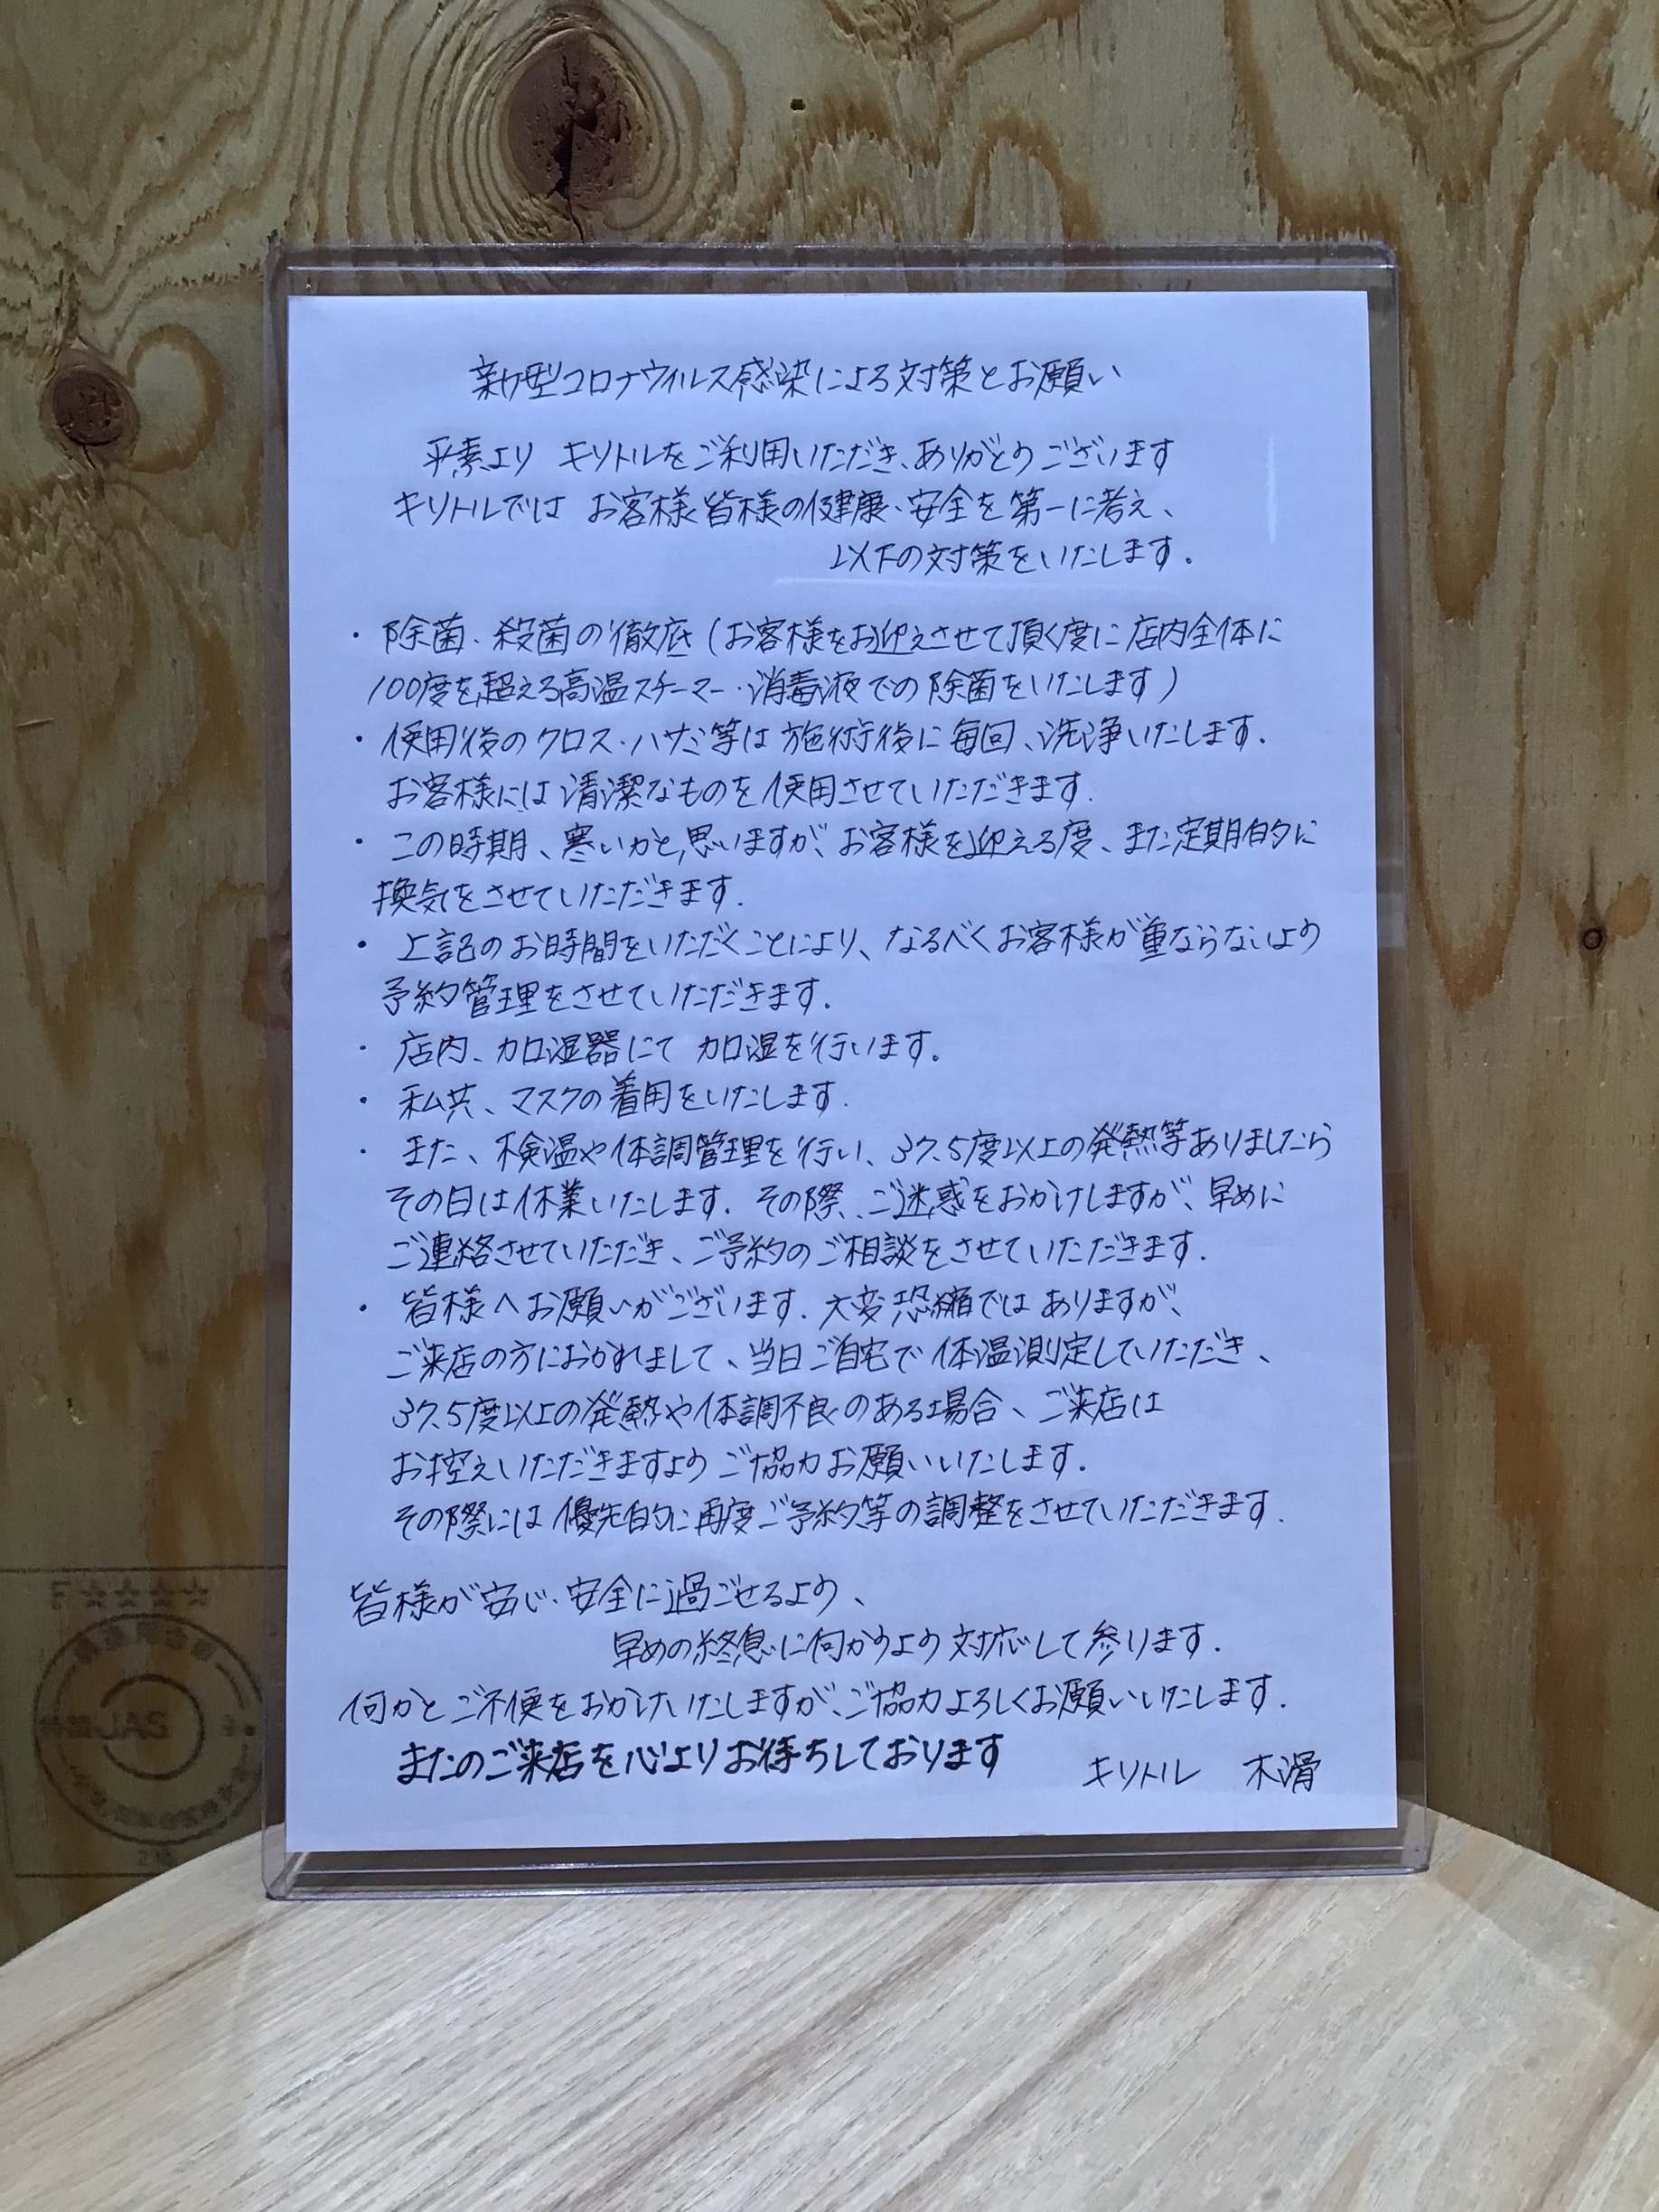 新型コロナウィルス感染による対策とお願い
平素より キリトルをご利用いただき、ありがとうございます
キリトルでは お客様皆様の健康、安全を第一に考え、
以下の対策をいたします.
・除菌、殺菌の徹底(お客様をお迎えさせて頂く度に店内全体に
100度を超える高温スチーマー・消毒液での除菌をいたします)
・使用後のクロス・ハサミ等は施術後に毎回、洗浄いたします.
お客様には清潔なものを使用させていただきます.
・この時期、寒いかと思いますが、お客様を迎える度、また定期的に
換気をさせていただきます.
・上記のお時間をいただくことにより、なるべくお客様が重ならないよう
予約管理をさせていただきます.
・店内、加湿器にて 加湿を行います.
・私共、マスクの着用をいたします.
・また、検温や体調管理を行い、37.5度以上の発熱等ありましたら
その日は休業いたします. その際、ご迷惑をおかけしますが、早めに
ご連絡させていただき、ご予約のご相談をさせていただきます.
・皆様へお願いがございます. 大変恐縮ではありますが、
ご来店の方におかれまして、当日ご自宅で体温測定していただき、
37.5度以上の発熱や体調不良のある場合、ご来店は
お控えいただきますようご協力お願いいたします.
その際には優先的に再度ご予約等の調整をさせていただきます.
皆様が安心・安全に過ごせるよう、
早めの終息に向かうよう対応して参ります.
何かとご不便をおかけいたしますが、ご協力よろしくお願いいたします.
またのご来店を心よりお待ちしております
キリトル 木滑
F☆☆☆☆
JAS